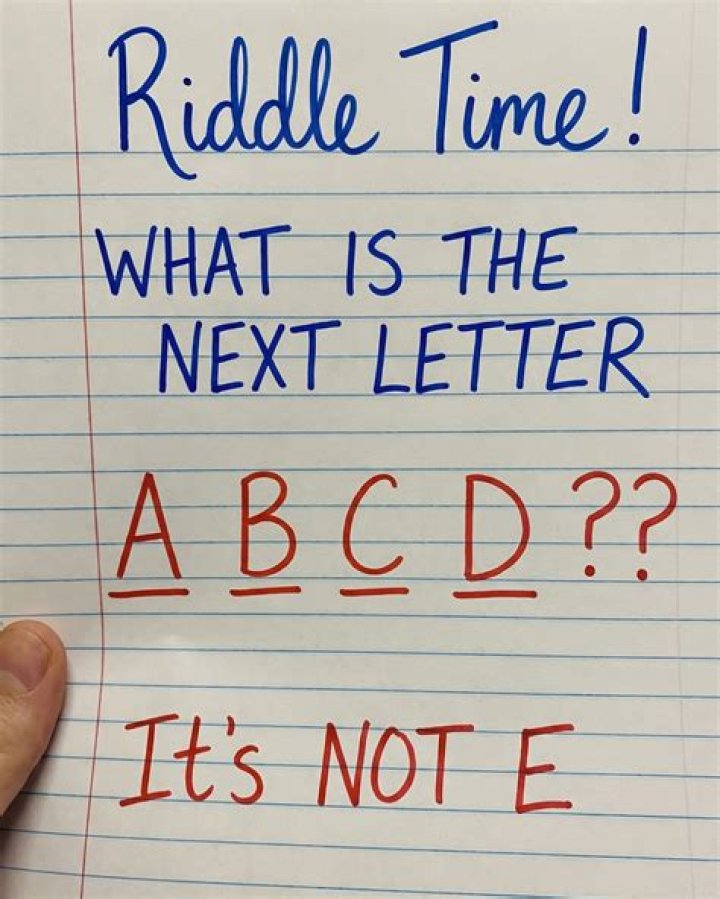 Riddle Time!
WHAT IS THE
NEXT LETTER
A B C D ??
It's NOT E